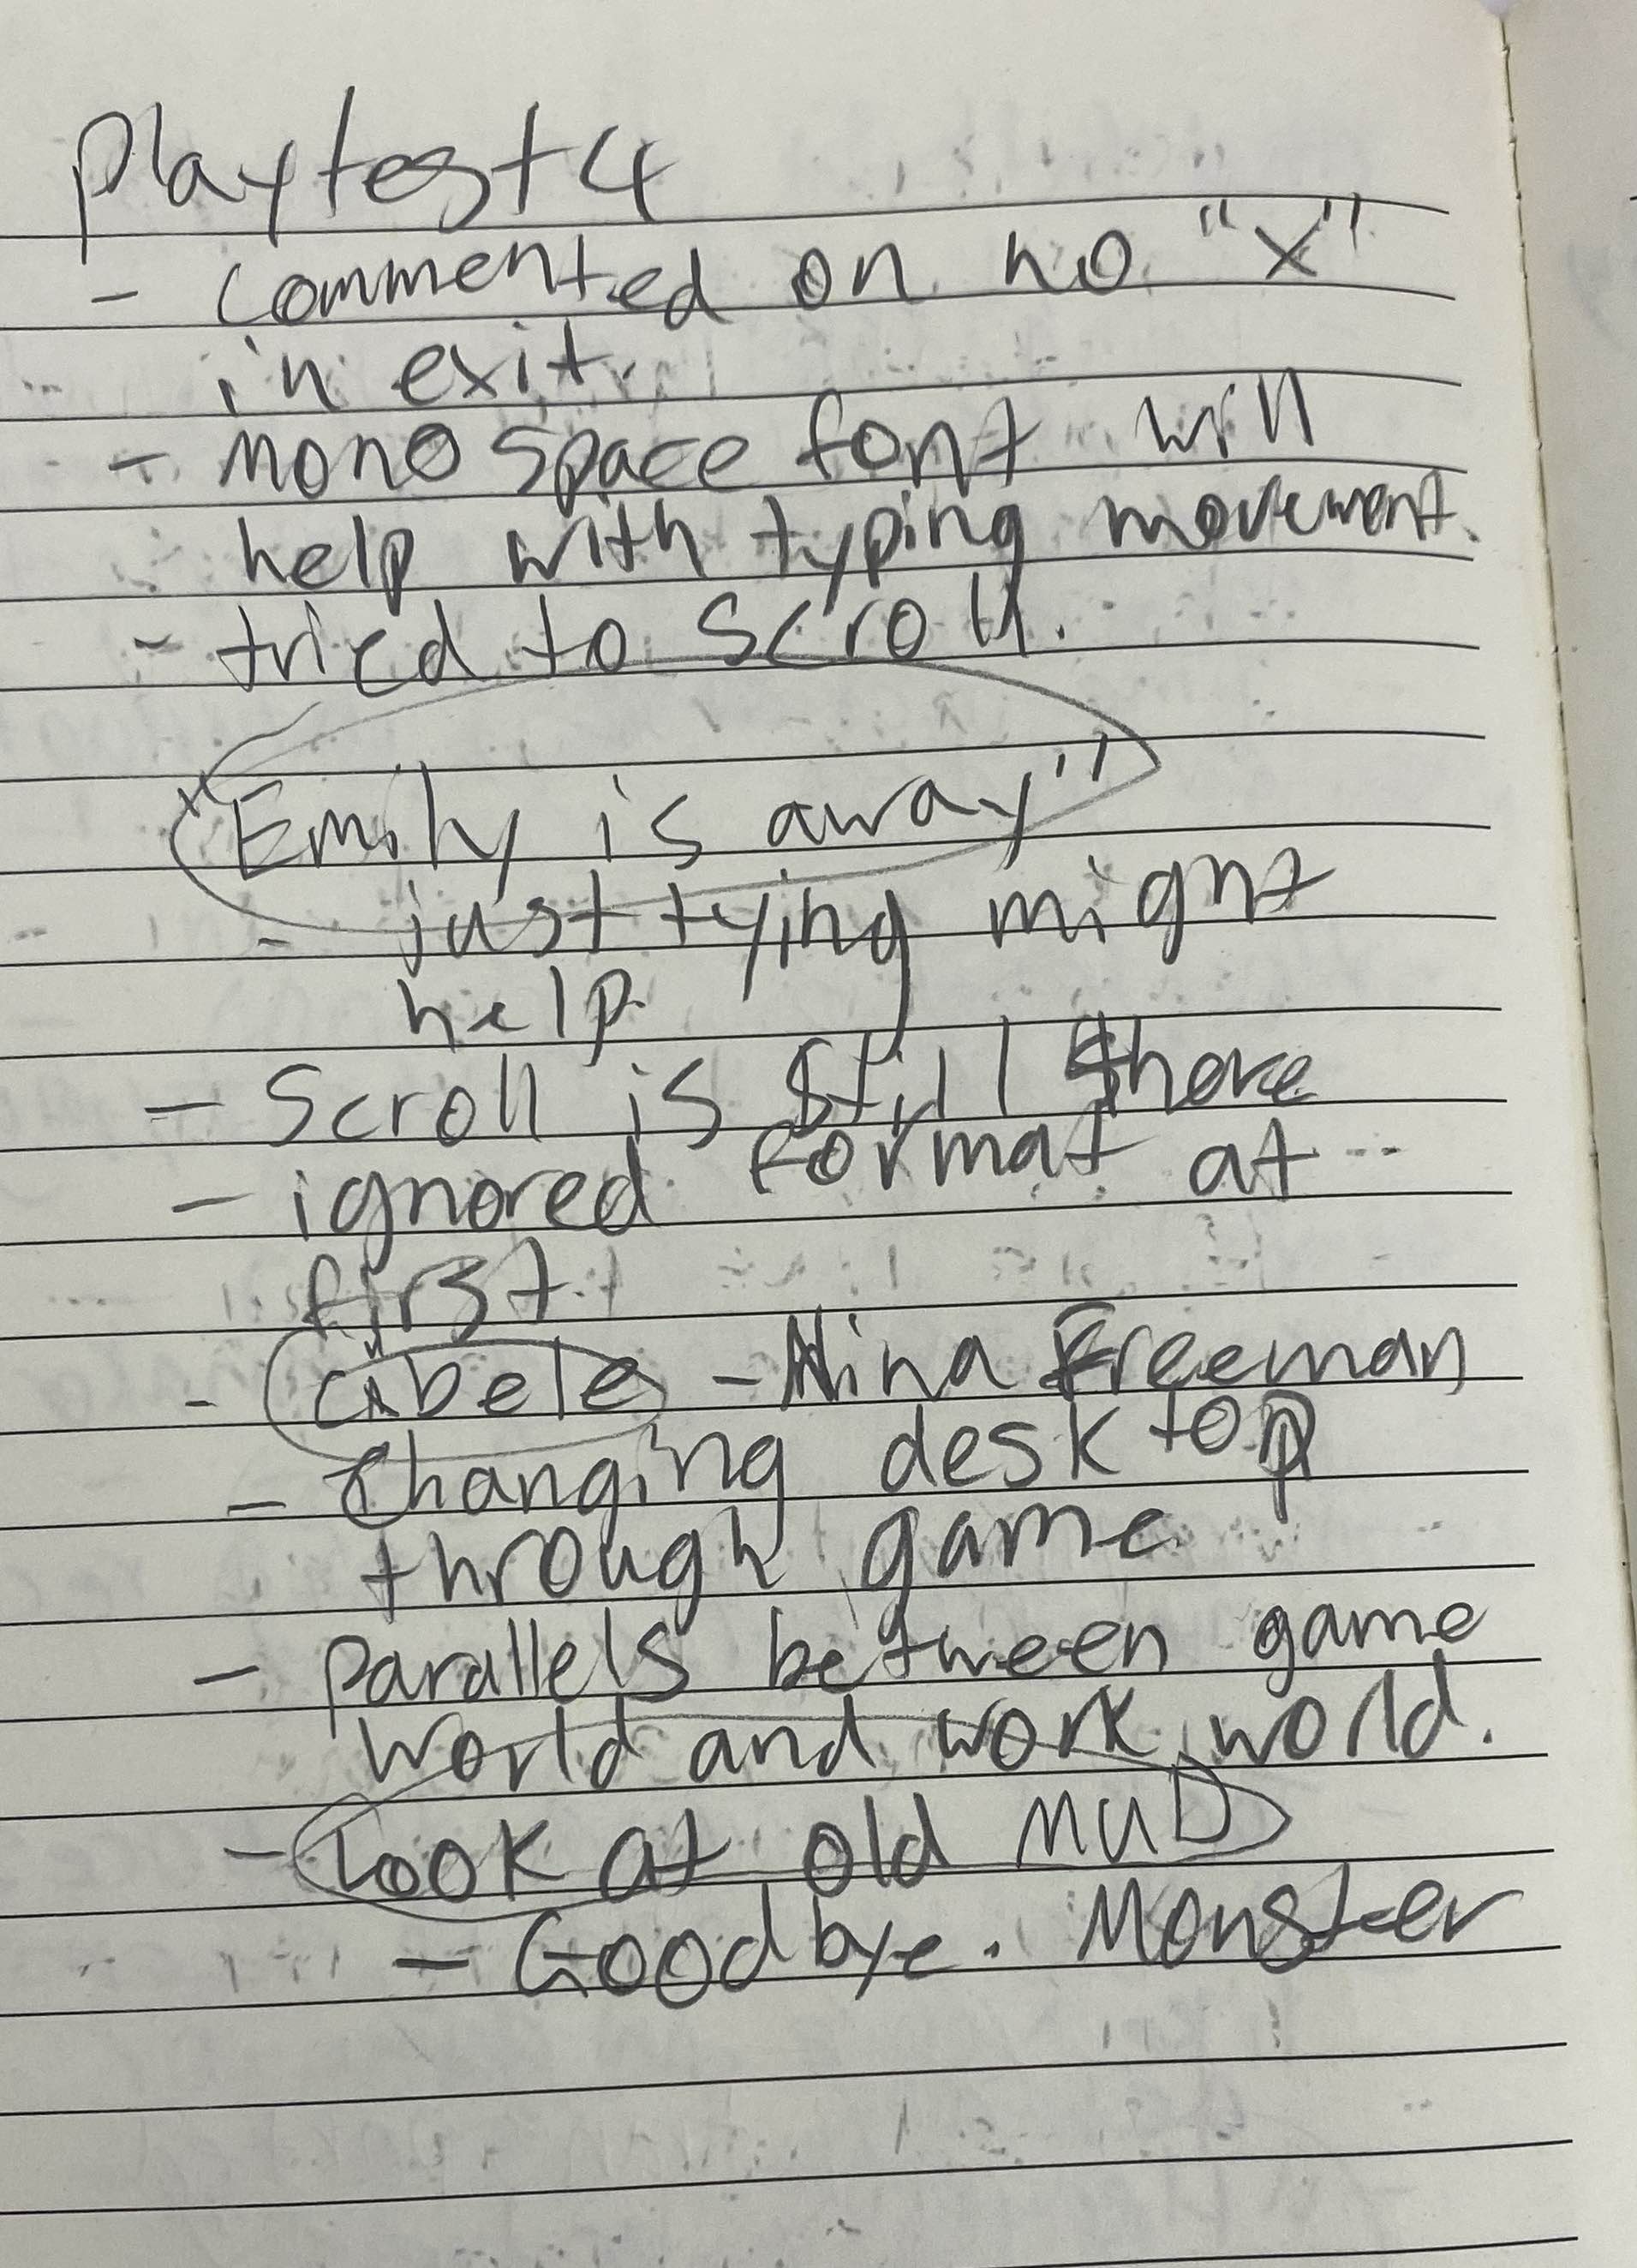 Playtest 4
- commented on no "X"
in exit.
- mono space font will
help with typing movement.
- tried to scroll.
"Emily is away"
- just tying might
help.
- Scroll is still there
- ignored format at
first.
- Cibele - Nina Freeman
- Changing desktop
through game
- parallels between game
world and work world.
- Look at old MUD
- Goodbye. Monster